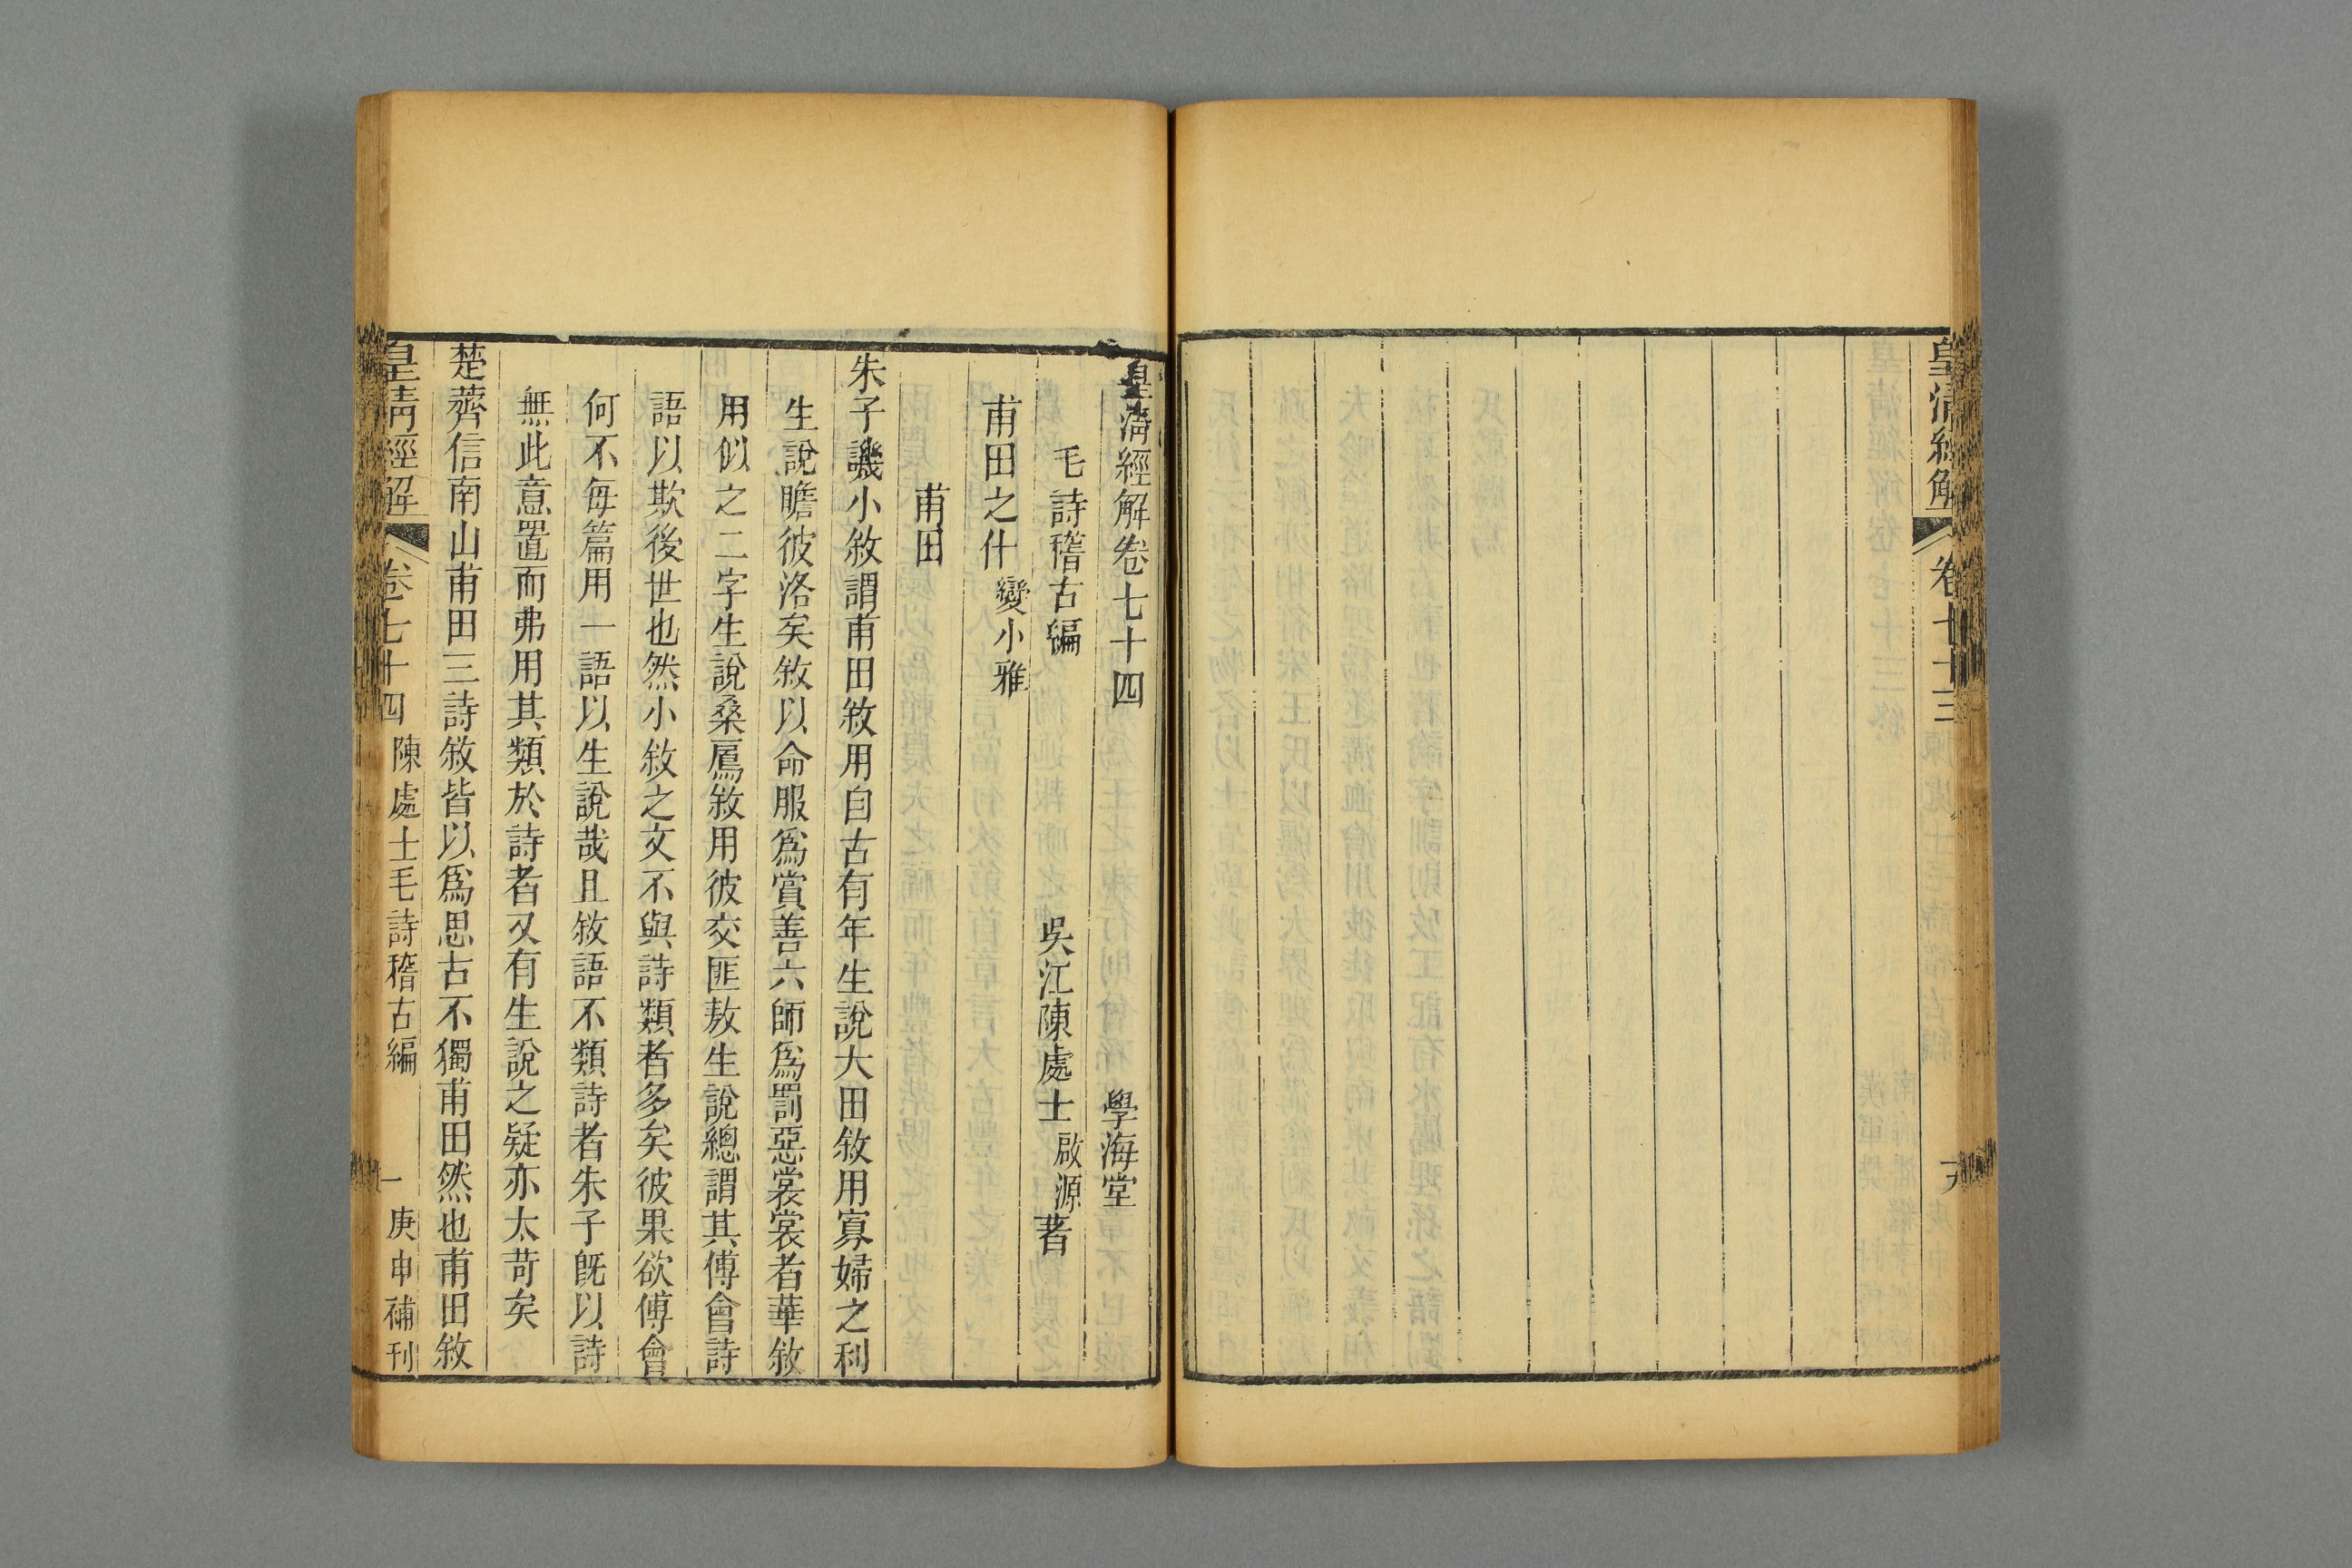 皇清經解 卷七十三
皇清經解卷七十四 學海堂
毛詩稽古編 吳江陳處士啟源著
甫田之什 變小雅
甫田
朱子譏小敘謂甫田敘用自古有年生說大田敘用寡婦之利
生說瞻彼洛矣敘以命服爲賞善六師爲罰惡裳裳者華敘
用似之二字生說桑扈敘用彼交匪敖生說總謂其傅會詩
語以欺後世也然小敘之文不與詩類者多矣彼果欲傅會
何不每篇用一語以生說哉且敘語不類詩者朱子既以詩
無此意置而弗用其類於詩者又有生說之疑亦太苛矣
楚薺信南山甫田三詩敘皆以爲思古不獨甫田然也甫田敘
皇清經解 卷七十四 陳處士毛詩稽古編 一 庚申補刊